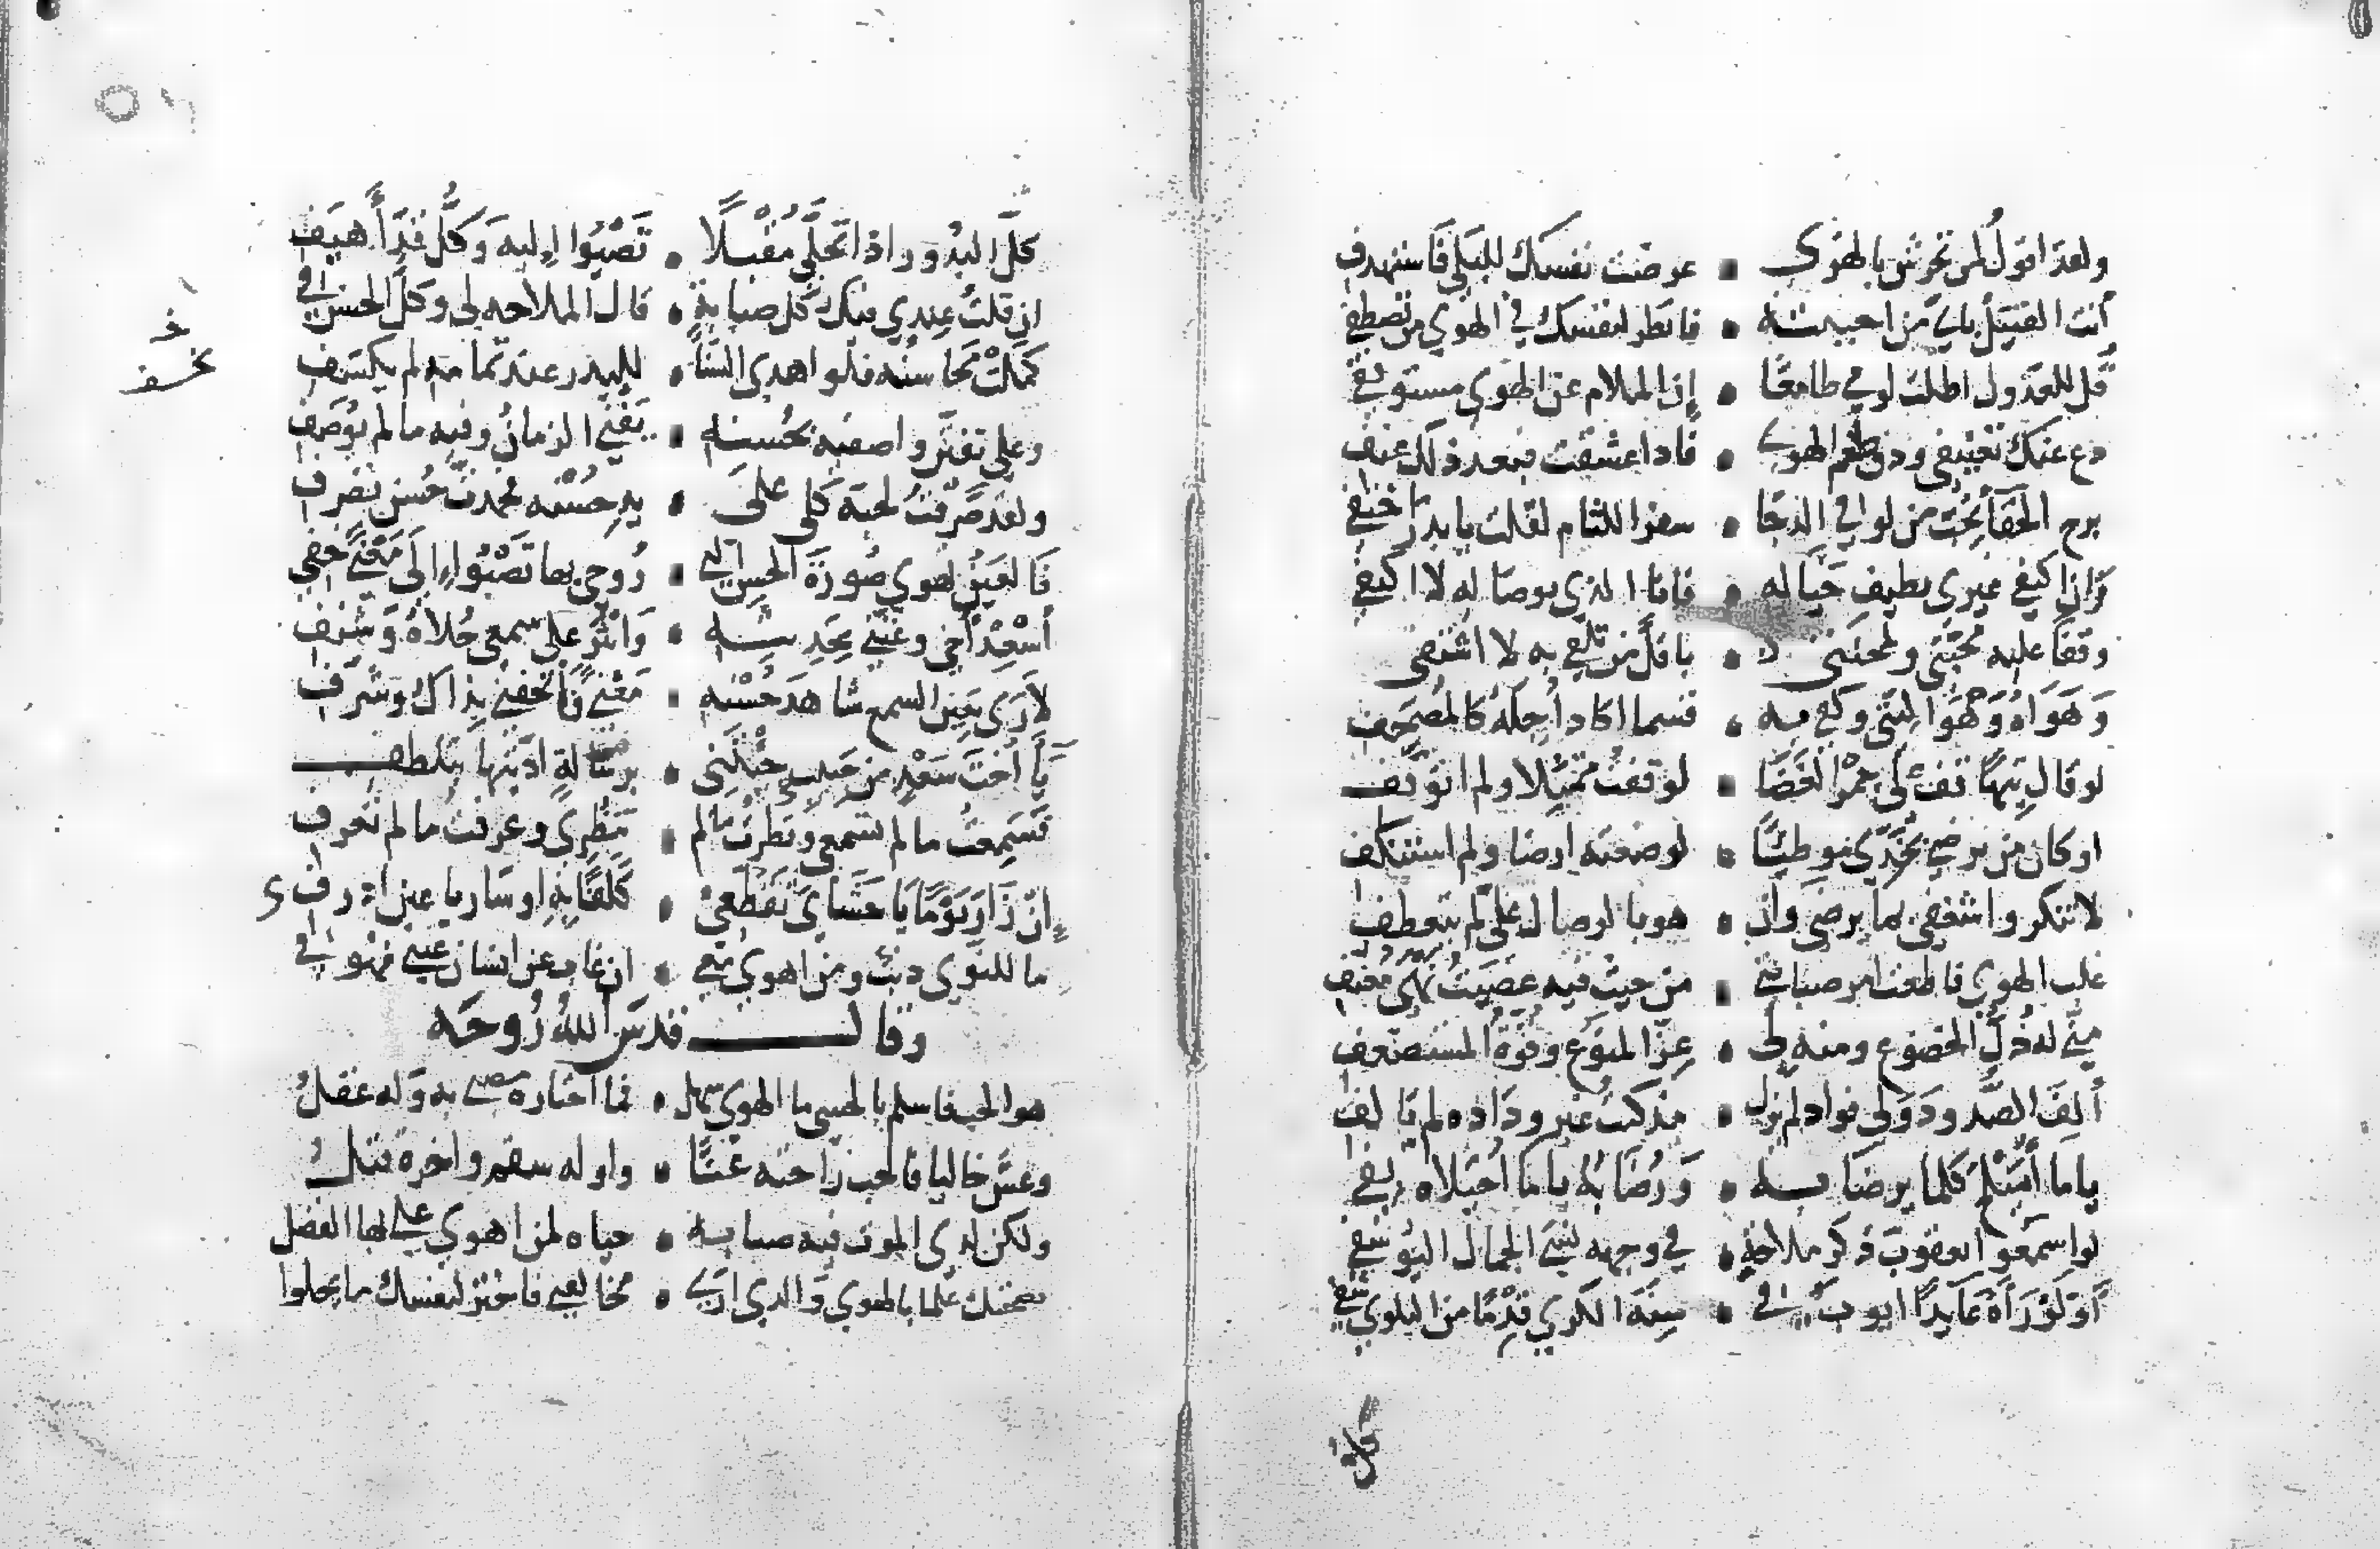 ولقد اقولُ لمن تحرش بالهوى • عرضت نفسك للبلى فاستهدف
أنت القتيل بأي من احببته • فانظر لنفسك في الهوي من تصطفي
قل للعذول اطلت لومي طامعًا • إن الملام عن الهوي مستوقفي
دع عنك تعنيفي وذق طعم الهوى • فاذا عشقت فبعد ذلك عنف
برح الخفا بحُب من لو في الدجا • سفر اللثام لقلت يا بدر اختفي
وان اكتفي غيري بطيف خياله • فانا الذي بوصاله لا اكتفي
وقفا عليه محبتي ولمحنتي • باقل من تلفي به لا اشتفي
وَهَوَاهُ وَهْوَ اليتي وكفي به • قسما اكاد أجلهُ كالمصحف
لو قال تيهًا قف على جمر الغضا • لوقفت ممتثلا ولم اتوقف
او كان من يرضي بخدي موطئًا • لوضعته ارضا ولم استنكف
لا تنكروا شغفي بما يرضي وان • هو بالوصال عليّ لم يتعطف
غلب الهوي فاطعت امر صبابتي • من حيث فيه عصيت نهي معنفي
مني له ذُلّ الخضوع ومنه لي • عزّ المنوع وقوة المستضعف
ألِفَ الصَّد ودَ ولي فواد لم يزل • مذ كنت غير وداده لم يالف
ياما أميلح كلما يرضا به • وَرُضَابُهُ ياما أحيلاه بفي
لو اسمعوا يعقوب ذكر ملاحةٍ • في وجهه نسي الجمال اليوسفي
أَوْ لَوْ رَآهُ عَايدًا ايوب في • سِنَة الكري قِدْمًا من البلوي شفي
كل
كلّ البدُور اذا تجلّي مقْبلًا • تَصْبُوا إليه وَكلّ قدٍّ أَهيَف
ان قلتُ عندي فيك كل صبابةٍ • قال الملاحه لي وكلّ الحسن في
كملتْ محاسنُه فلو اهدي السَّنا • للبدر عند تمامه لم يكسَف
وعلى تفنّن واصفيه بحُسنه • يَفْنَي الزمانُ وفيه ما لم يُوصَف
ولقد صَرفتُ لحبّه كلي على • يدِ حُسْنه فحمدت حُسن تصرف
فَالعين تهوي صُورَةَ الحسن التي • رُوحي بها تَصْبُوا إلَى مَعْنًى خفي
أسْعِدْ أخي وغنّني بحديثه • وَانثُرْ على سمعي حُلاَهُ وَشنف
لأرَى بعين السمع شاهدَ حُسْنه • مَعْنًى فَأتحفني بذاك وشرف
يا أختَ سَعْدٍ من حبيبي جئتَني • برسَالةٍ ادّيتها بتلطف
فسَمِعتُ ما لم تسمعي ونظرتُ ما لم • تنظرِي وعرفت ما لم تعرفي
إن زَارَ يَوْمًا يَا حَشَايَ تَقَطّعي • كَلَفًا بِهِ او سَار يا عين اذرفي
ما للنّوي ذنبٌ ومن اهوي معي • ان غاب عن انسان عيني فهْو في
وقال قدسَ اللّهُ رُوحَه
هو الحب فاسلم بالحشي ما الهوي سهل • فما اختاره مضني به وَله عقلُ
وعشْ خاليا فالحب راحته عَنًا • واوله سقم واخره قتلُ
ولكن لدى الموت فيه صبابه • حياه لمن اهوي علي بها الفضل
نصحتك علما بالهوي والذي اري • مخالفتي فاختر لنفسك ما يحلوا